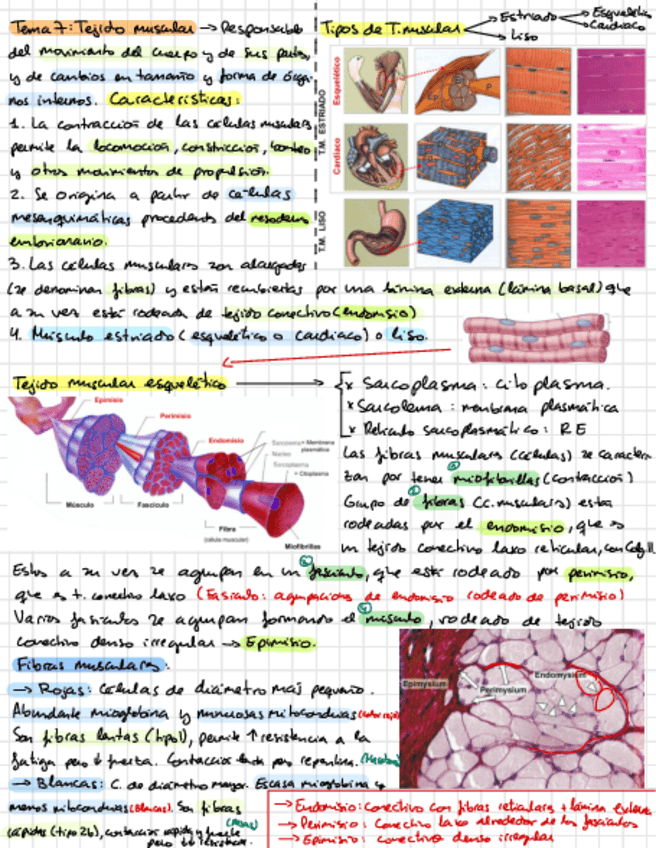 Tema 7: Tejido muscular → Responsable
del movimiento del cuerpo y de sus partes,
y de cambios en tamaño y forma de órga-
nos internos. Características:
1. La contracción de las células musculares
permite la locomoción, constricción, bombeo
y otros movimientos de propulsión.
2. Se origina a partir de células
mesenquimáticas procedentes del mesodermo
embrionario.
3. Las células musculares son alargadas
(se denominan fibras) y están recubiertas por una lámina externa (lámina basal) que
a su vez está rodeada de tejido conectivo (endomisio)
4. Músculo estriado (esquelético o cardiaco) o liso.
Tipos de T. muscular
Estriado
Esquelético
Cardiaco
Liso
T.M. ESTRIADO
Esquelético
Cardiaco
T.M. LISO
Tejido muscular esquelético
x Sarcoplasma: citoplasma.
x Sarcolema: membrana plasmática
x Retículo sarcoplasmático: RE
Epimisio
Perimisio
Endomisio
Sarcolema = Membrana
plasmática
Núcleo
Sarcoplasma
= Citoplasma
Músculo
Fascículo
Fibra
(célula muscular)
Miofibrillas
Las fibras musculares (células) se caracteri-
zan por tener miofibrillas (contracción)
Grupo de fibras (c. musculares) están
rodeadas por el endomisio, que es
un tejido conectivo laxo reticular, con
Estos a su vez se agrupan en un fascículo, que está rodeado por perimisio,
que es t. conectivo laxo (Fasículo: agrupaciones de endomisio rodeado de perimisio)
Varios fasículos se agrupan formando el músculo, rodeado de tejido
conectivo denso irregular → Epimisio.
Fibras musculares:
→ Rojas: Células de diámetro más pequeño.
Abundante mioglobina y numerosas mitocondrias (color rojo)
Son fibras lentas (tipo 1), permite ↑ resistencia a la
fatiga pero ↓ fuerza. Contracción lenta pero repentina.
→ Blancas: C. de diámetro mayor. Escasa mioglobina y
menos mitocondrias (blancas). Son fibras
rápidas (tipo 2b), contracción rápida y fuerte
pero
Epimysium
Perimysium
Endomysium
→ Endomisio: conectivo con fibras reticulares + lámina externa
→ Perimisio: Conectivo laxo alrededor de los fasículos
→ Epimisio: conectivo denso irregular